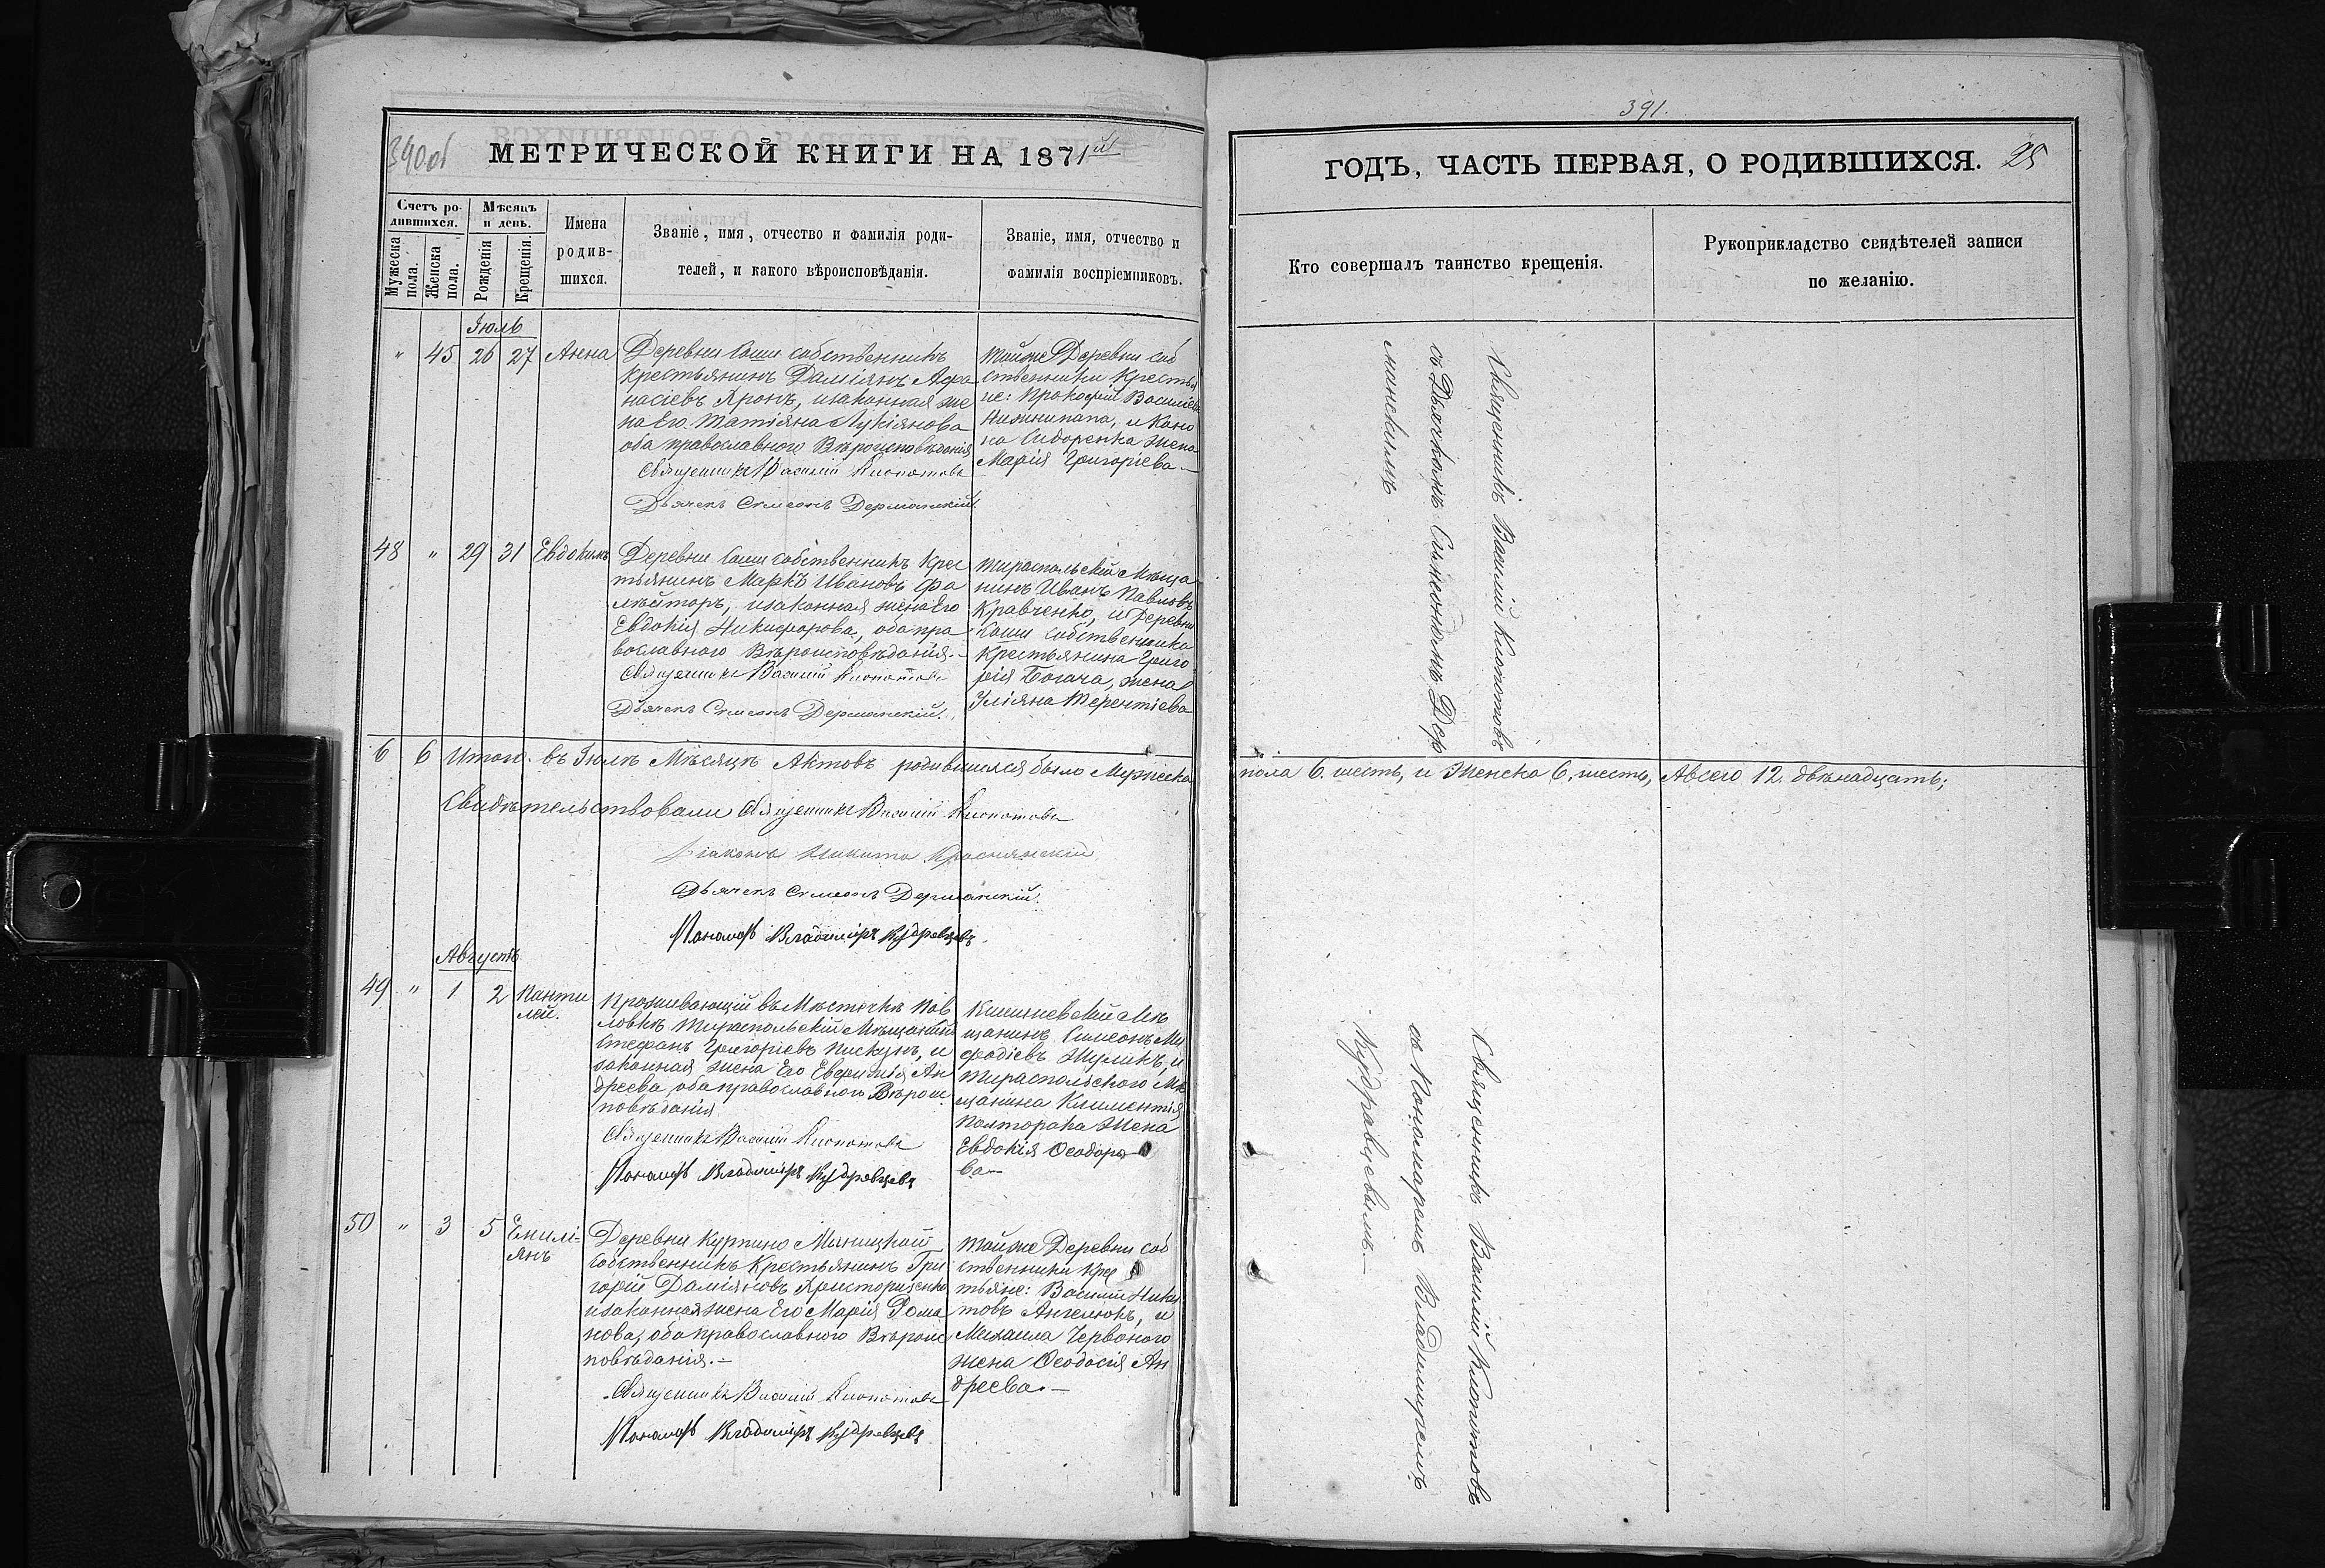 390об
МЕТРИЧЕСКОЙ КНИГИ НА 1871й
Счетъ ро-
дившихся.
Мужеска
пола.
Женска
пола.
Мѣсяцъ
и день.
Рожденія
Крещенія.
Имена
родив-
шихся.
Званіе, имя, отчество и фамилія роди-
телей, и какого вѣроисповѣданія.
Званіе, имя, отчество и
фамилія воспріемниковъ.
Іюль
" 45 26 27 Анна
Деревни Коши собственникъ
крестьянинъ Даміянъ Афа
насіевъ Яронъ, изаконная же
на Его Татіяна Лукіянова
оба православного Вѣроисповѣданія
Священникъ Василій Клопотовъ
Дьячекъ Симеонъ Дерманскій.
Тойже Деревни соб
ственники Крестья
не: Прокофій Василіевъ
и Коно
на Сидоренка жена
Марія Григоріева —
48 " 29 31 Евдокимъ
Деревни Коши собственникъ Крес
тьянинъ Маркъ Ивановъ Фа
лѣйторъ, изаконная жена Его
Евдокія Никифорова, оба пра
вославного Вѣроисповѣданія. —
Священникъ Василій Клопотовъ
Дьячекъ Симеонъ Дерманскій.
Тираспольскій Мѣща
нинъ Иванъ Павловъ
Кравченко, и Деревни
Коши собственника
Крестьянина Григо
рія Богача, жена
Уліяна Терентіева
6 6 Итого въ Іюлѣ Мѣсяцѣ Актовъ родившихся было Мужеска
Свидѣтельствовали Священникъ Василій Клопотовъ
Діаконъ Никита Краснянскій
Дьячекъ Симеонъ Дерманскій.
Пономарь Владиміръ Кудревцевъ
Августъ
49 " 1 2 Панти
лей.
Проживающій въ Мѣстечкѣ Пав
ловкѣ Тираспольскій Мѣщанинъ
Стефанъ Григоріевъ Пискунъ, и
законная жена Его Евфимія Ан
дреева, оба православного Вѣроис
повѣданія
Священникъ Василій Клопотовъ
Пономарь Владиміръ Кудревцевъ
Кишиневскій Мѣ
щанинъ Симеонъ Ме
фодіевъ Жуликъ, и
Тираспольского Мѣ
щанина Климентія
Полторака Жена
Евдокія Ѳеодоро
ва —
50 " 3 5 Емилі=
янъ
Деревни Курпино
собственникъ Крестьянинъ Гри
горій Даміяновъ Христорищенко
изаконная жена Его Марія Рома
нова, оба православного Вѣроис
повѣданія. —
Священникъ Василій Клопотовъ
Пономарь Владиміръ Кудревцевъ
Тойже Деревни соб
ственники Крес
тьяне: Василій Ники
товъ Ангелюкъ, и
Михаила Червоного
жена Ѳеодосія Ан
дреева. —
391.
ГОДЪ, ЧАСТЬ ПЕРВАЯ, О РОДИВШИХСЯ. 25
Кто совершалъ таинство крещенія.
Рукоприкладство свидѣтелей записи
по желанію.
Священникъ Василій Клопотовъ
съ Дьячкомъ Симеономъ Дер
манскимъ
пола 6. шесть, и Женска 6. шесть, Авсего 12. двѣнадцать;
Священникъ Василій Клопотовъ
съ Пономаремъ Владимиремъ
Кудравцевымъ —